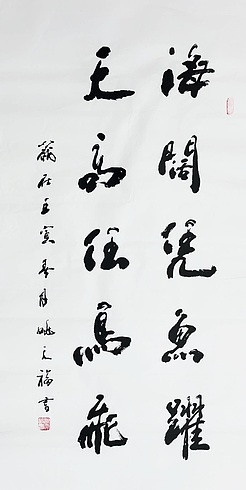 海闊凭魚躍
天高任鳥飛
歲在壬寅春月姚福書